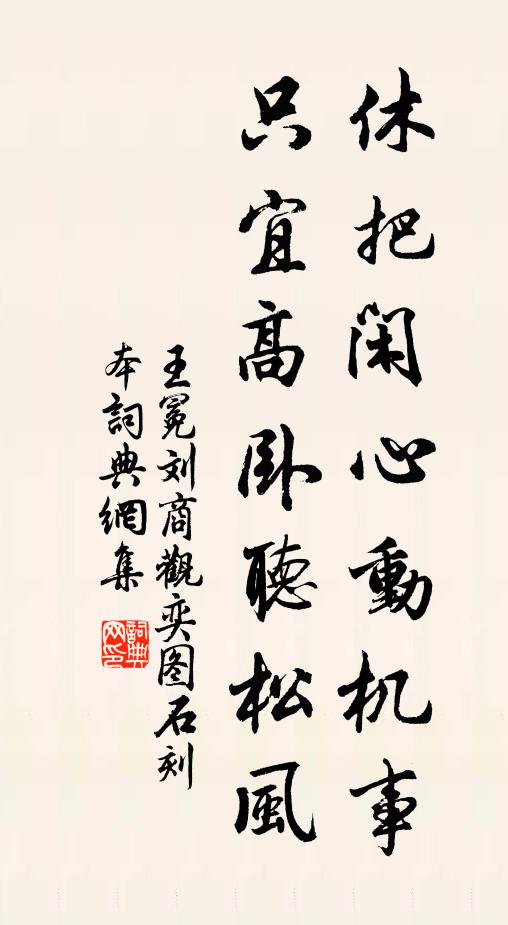 休把閑心動机事
只宜高卧聽松風
王冕刘商觀奕图石刻
本詞典網集
詞典网印